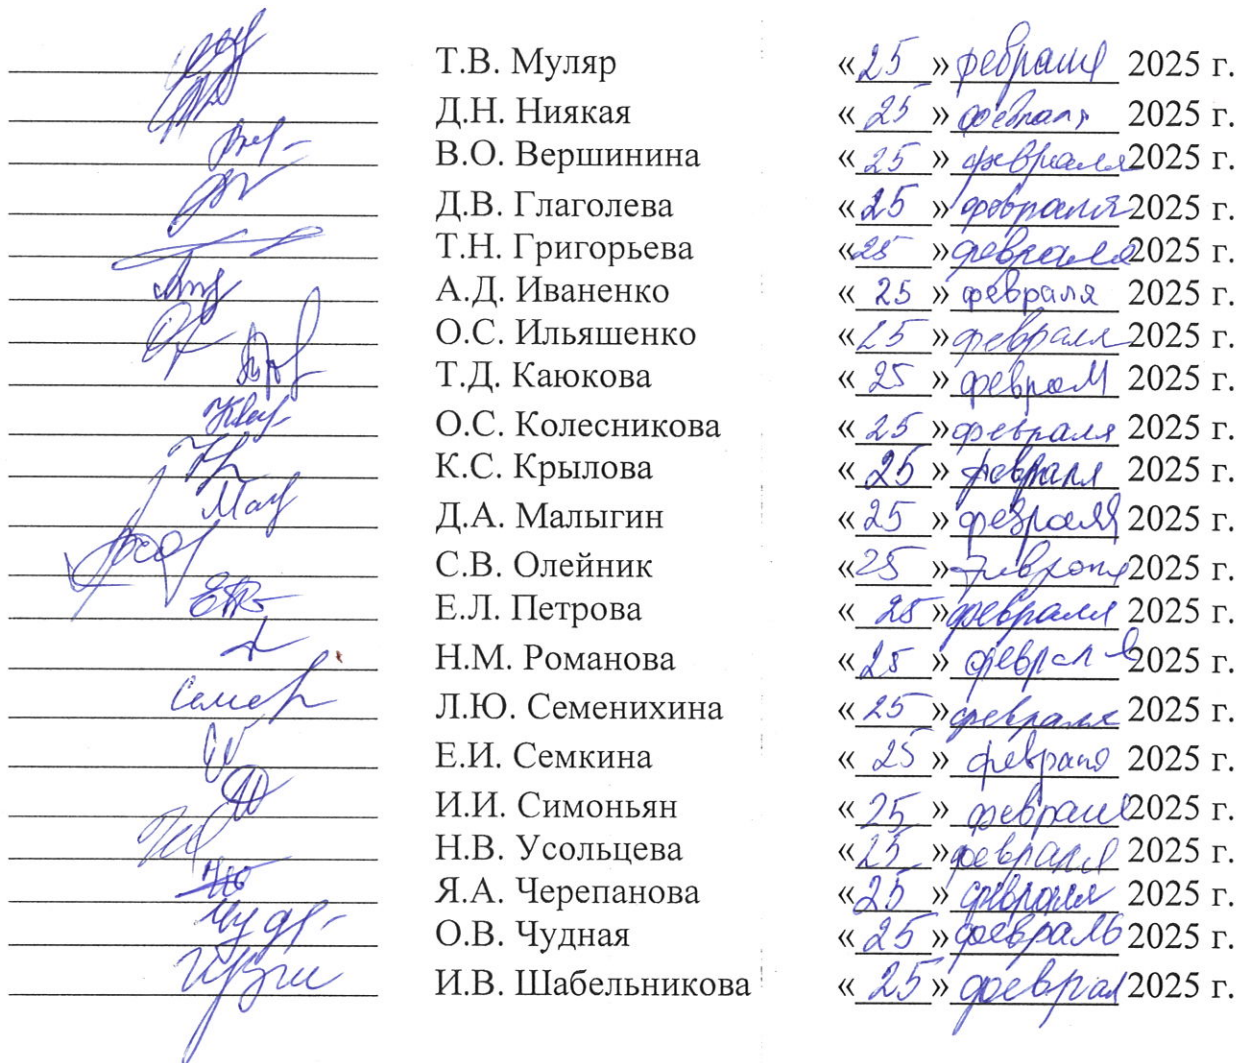 Т.В. Муляр «25» февраля 2025 г.
Д.Н. Ниякая «25» февраля 2025 г.
В.О. Вершинина «25» февраля 2025 г.
Д.В. Глаголева «25» февраля 2025 г.
Т.Н. Григорьева «25» февраля 2025 г.
А.Д. Иваненко «25» февраля 2025 г.
О.С. Ильяшенко «25» февраля 2025 г.
Т.Д. Каюкова «25» февраля 2025 г.
О.С. Колесникова «25» февраля 2025 г.
К.С. Крылова «25» февраля 2025 г.
Д.А. Малыгин «25» февраля 2025 г.
С.В. Олейник «25» февраля 2025 г.
Е.Л. Петрова «25» февраля 2025 г.
Н.М. Романова «25» февраля 2025 г.
Л.Ю. Семенихина «25» февраля 2025 г.
Е.И. Семкина «25» февраля 2025 г.
И.И. Симоньян «25» февраля 2025 г.
Н.В. Усольцева «25» февраля 2025 г.
Я.А. Черепанова «25» февраля 2025 г.
О.В. Чудная «25» февраль 2025 г.
И.В. Шабельникова «25» феврал 2025 г.